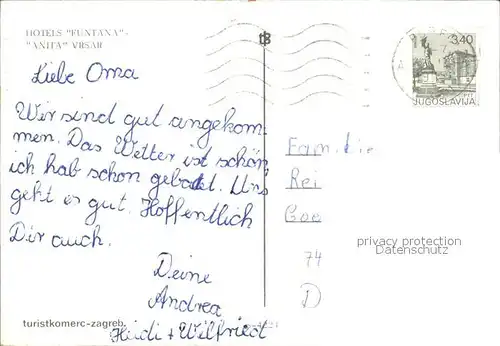 HOTELS "FUNTANA"-
"ANITA" VRSAR
3,40
JUGOSLAVIJA
Liebe Oma
Wir sind gut angekom-
men. Das Wetter ist schön
ich hab schon gebadet. Uns
geht es gut. Hoffentlich
Dir auch.
Deine
Andrea
Heidi + Wilfried
Familie
Rei
74
D
privacy protection
Datenschutz
turistkomerc-zagreb.